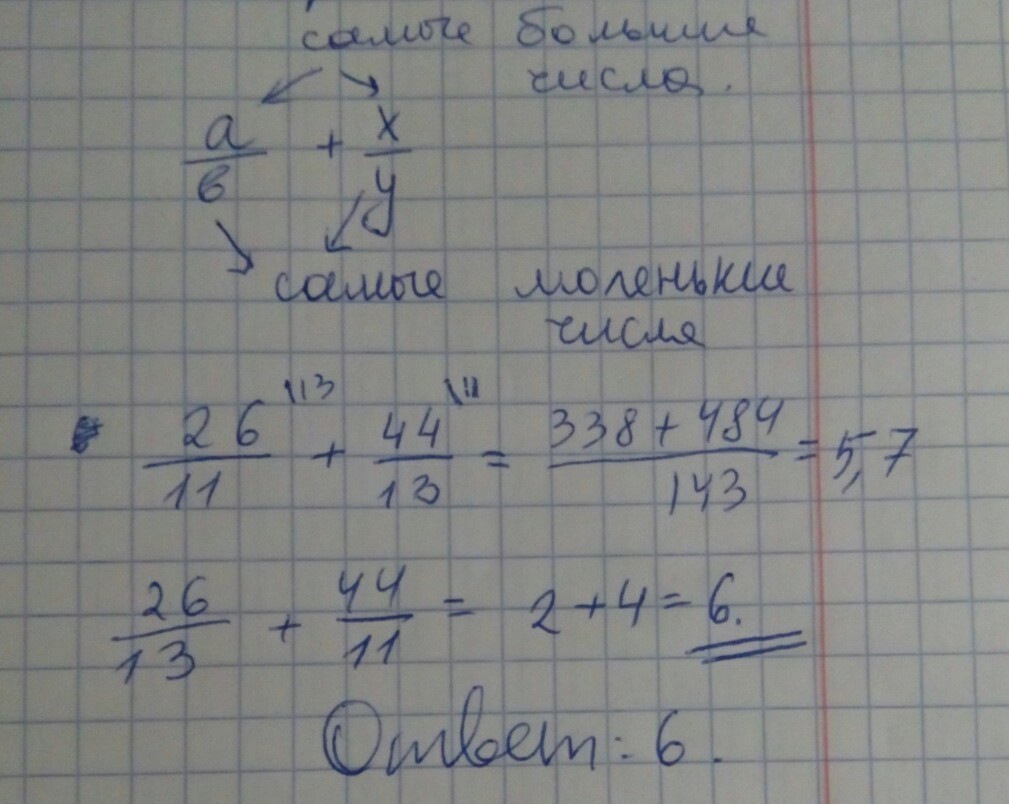 самые большие
числа.
a/в + x/y
самые маленькие
числа
26/11 \13 + 44/13 \11 = 338+484/143 = 5,7
26/13 + 44/11 = 2+4=6.
Ответ: 6.